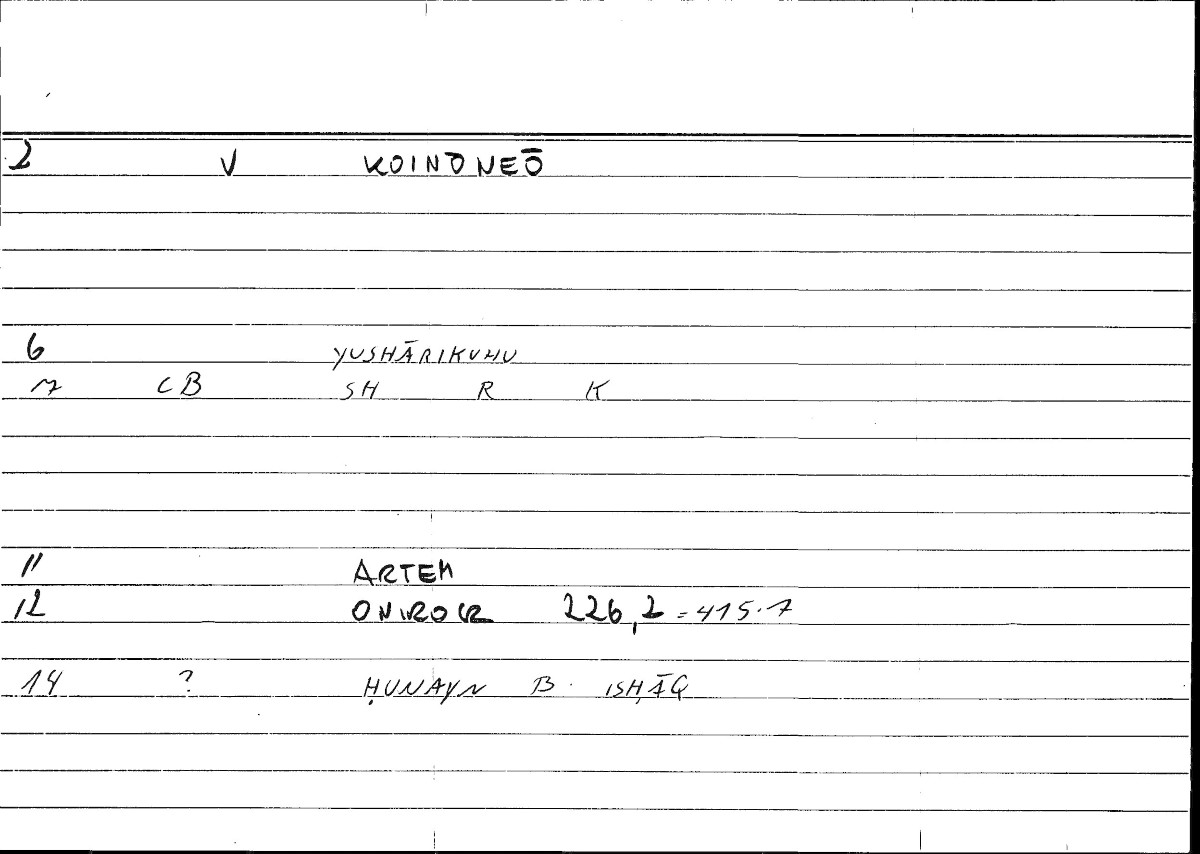 2 V KOINŌNEŌ
6 YUSHĀRIKUHU
7 CB SH R K
11 ARTEM
12 ONIROCR 226,2 = 415.7
14 ? ḤUNAYN B. ISḤĀQ